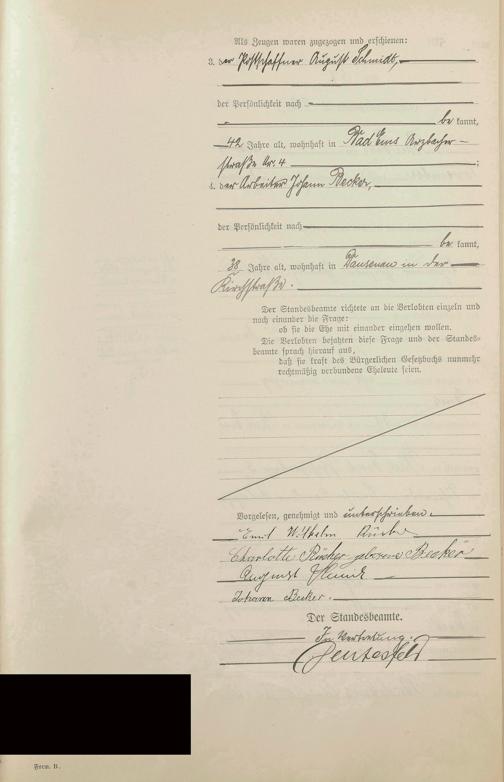 Als Zeugen waren zugezogen und erschienen:
3. der Postschaffner August Schmidt,
der Persönlichkeit nach
be kannt,
42 Jahre alt, wohnhaft in Bad Ems Arzbacher-
straße Nr. 4 ;
4. der Arbeiter Johann Becker,
der Persönlichkeit nach
be kannt,
38 Jahre alt, wohnhaft in Dausenau in der
Kirchstraße.
Der Standesbeamte richtete an die Verlobten einzeln und
nach einander die Frage:
ob sie die Ehe mit einander eingehen wollen.
Die Verlobten bejahten diese Frage und der Standes-
beamte sprach hierauf aus,
daß sie kraft des Bürgerlichen Gesetzbuchs nunmehr
rechtmäßig verbundene Eheleute seien.
Vorgelesen, genehmigt und unterschrieben.
Emil Wilhelm
Charlotte geborene Becker
August
Johann Becker.
Der Standesbeamte.
In Vertretung:
Form. B.